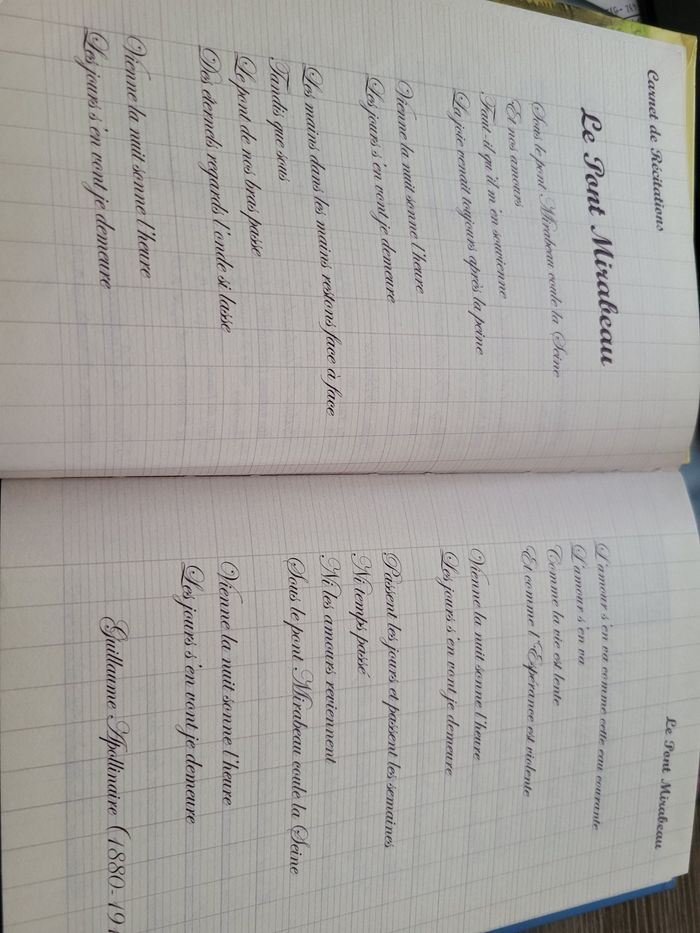 Carnet de Récitations
Le Pont Mirabeau
Sous le pont Mirabeau coule la Seine
Et nos amours
Faut-il qu'il m'en souvienne
La joie venait toujours après la peine
Vienne la nuit sonne l'heure
Les jours s'en vont je demeure
Les mains dans les mains restons face à face
Tandis que sous
Le pont de nos bras passe
Des éternels regards l'onde si lasse
Vienne la nuit sonne l'heure
Les jours s'en vont je demeure
Le Pont Mirabeau
L'amour s'en va comme cette eau courante
L'amour s'en va
Comme la vie est lente
Et comme l'Espérance est violente
Vienne la nuit sonne l'heure
Les jours s'en vont je demeure
Passent les jours et passent les semaines
Ni temps passé
Ni les amours reviennent
Sous le pont Mirabeau coule la Seine
Vienne la nuit sonne l'heure
Les jours s'en vont je demeure
Guillaume Apollinaire (1880-191